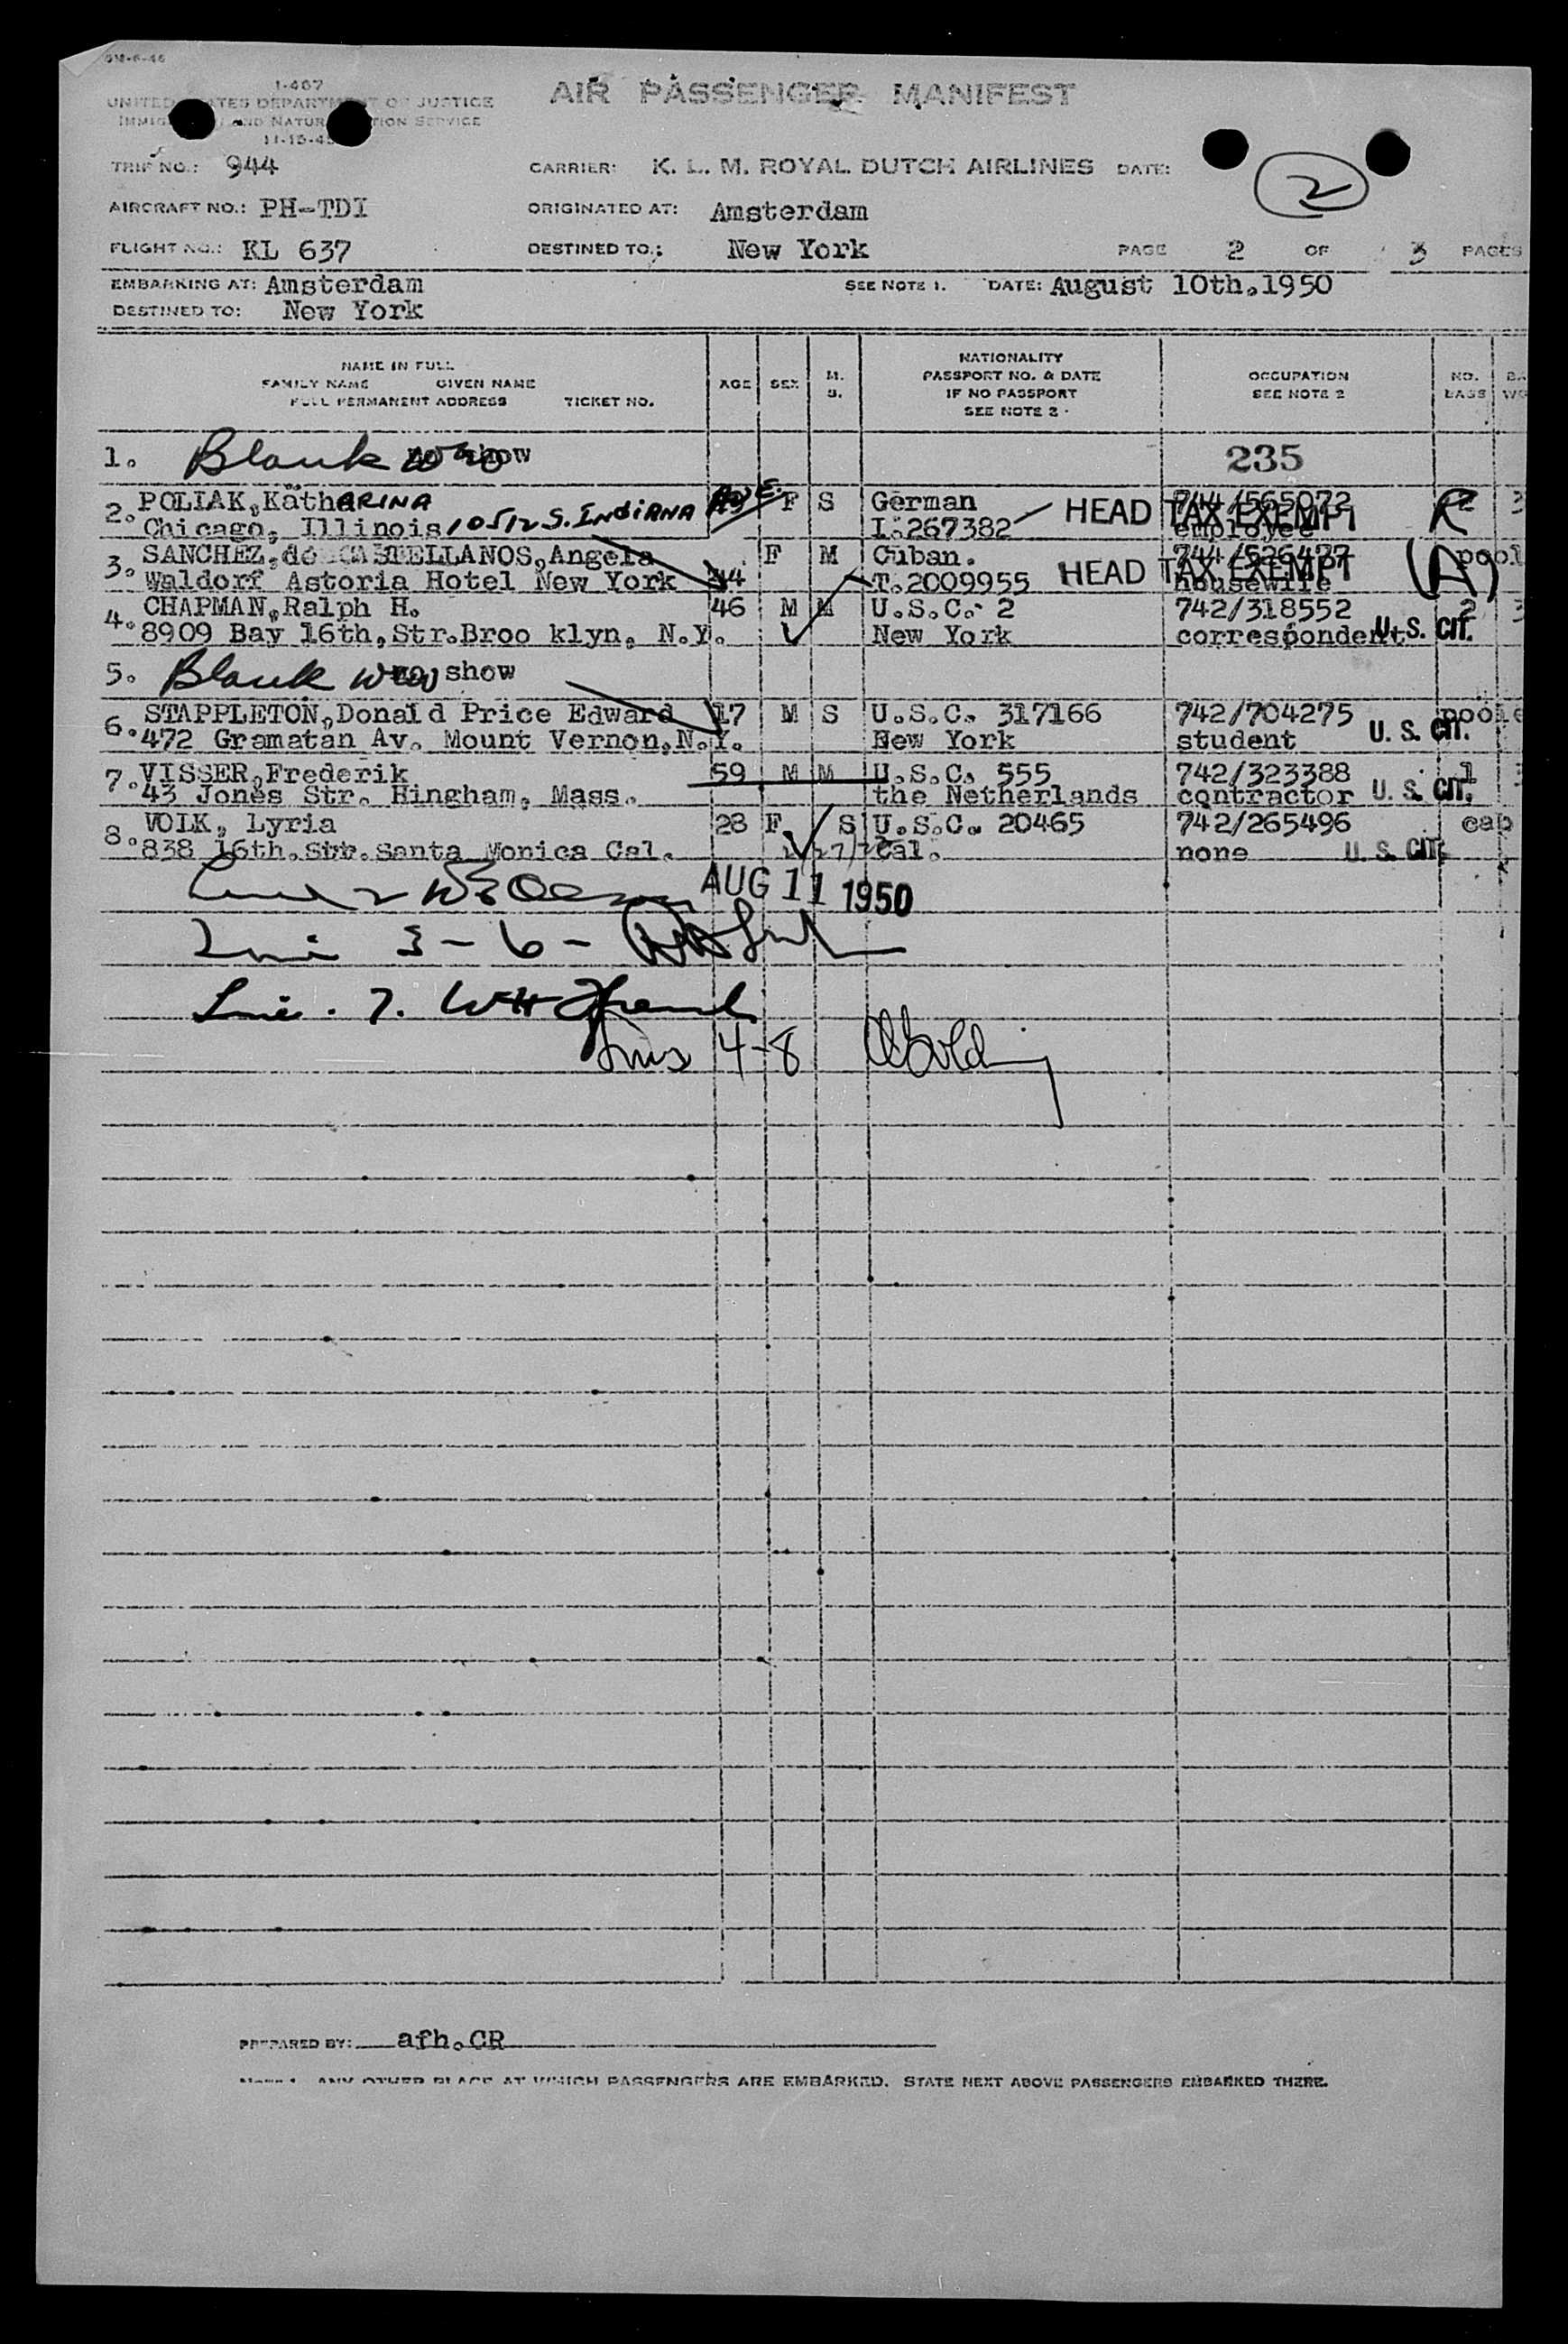 I-467
UNITED STATES DEPARTMENT OF JUSTICE
AIR PASSENGER MANIFEST
TRIP NO.: 944
CARRIER: K. L. M. ROYAL DUTCH AIRLINES DATE:
2
AIRCRAFT NO.: PH-TDI
ORIGINATED AT: Amsterdam
FLIGHT NO.: KL 637
DESTINED TO.: New York
PAGE 2 OF 3 PAGES
EMBARKING AT: Amsterdam
SEE NOTE 1. DATE: August 10th.1950
DESTINED TO: New York
NAME IN FULL
FAMILY NAME GIVEN NAME
FULL PERMANENT ADDRESS TICKET NO.
AGE SEX M. S.
NATIONALITY
PASSPORT NO. & DATE
IF NO PASSPORT
SEE NOTE 2
OCCUPATION
SEE NOTE 2
NO.
BAGS
1. Blank show 235
2. POLIAK,KäthARINA F S German 744/565072 R 2
Chicago, Illinois 10512 S. INdiANA I.267382 HEAD TAX EXEMPT employee
3. SANCHEZ,de CASTELLANOS,Angela F M Cuban. 744/526477 pool
Waldorf Astoria Hotel New York 44 T.2009955 HEAD TAX EXEMPT housewife (A)
4. CHAPMAN,Ralph H. 46 M M U.S.C. 2 742/318552 2
8909 Bay 16th,Str.Broo klyn, N.Y. New York correspondent U. S. CIT.
5. Blank show
6. STAPPLETON,Donald Price Edward 17 M S U.S.C. 317166 742/704275 poole
472 Gramatan Av. Mount Vernon.N.Y. New York student U. S. CIT.
7. VISSER,Frederik 59 M M U.S.C. 555 742/323388 1
43 Jones Str. Hingham, Mass. the Netherlands contractor U. S. CIT.
8. VOLK, Lyria 28 F S U.S.C. 20465 742/265496 cap
838 16th.Str.Santa Monica Cal. Cal. none U. S. CIT.
AUG 11 1950
3 - 6 -
7.
4-8
PREPARED BY: afh.CR
ANY OTHER PLACE AT WHICH PASSENGERS ARE EMBARKED. STATE NEXT ABOVE PASSENGERS EMBARKED THERE.